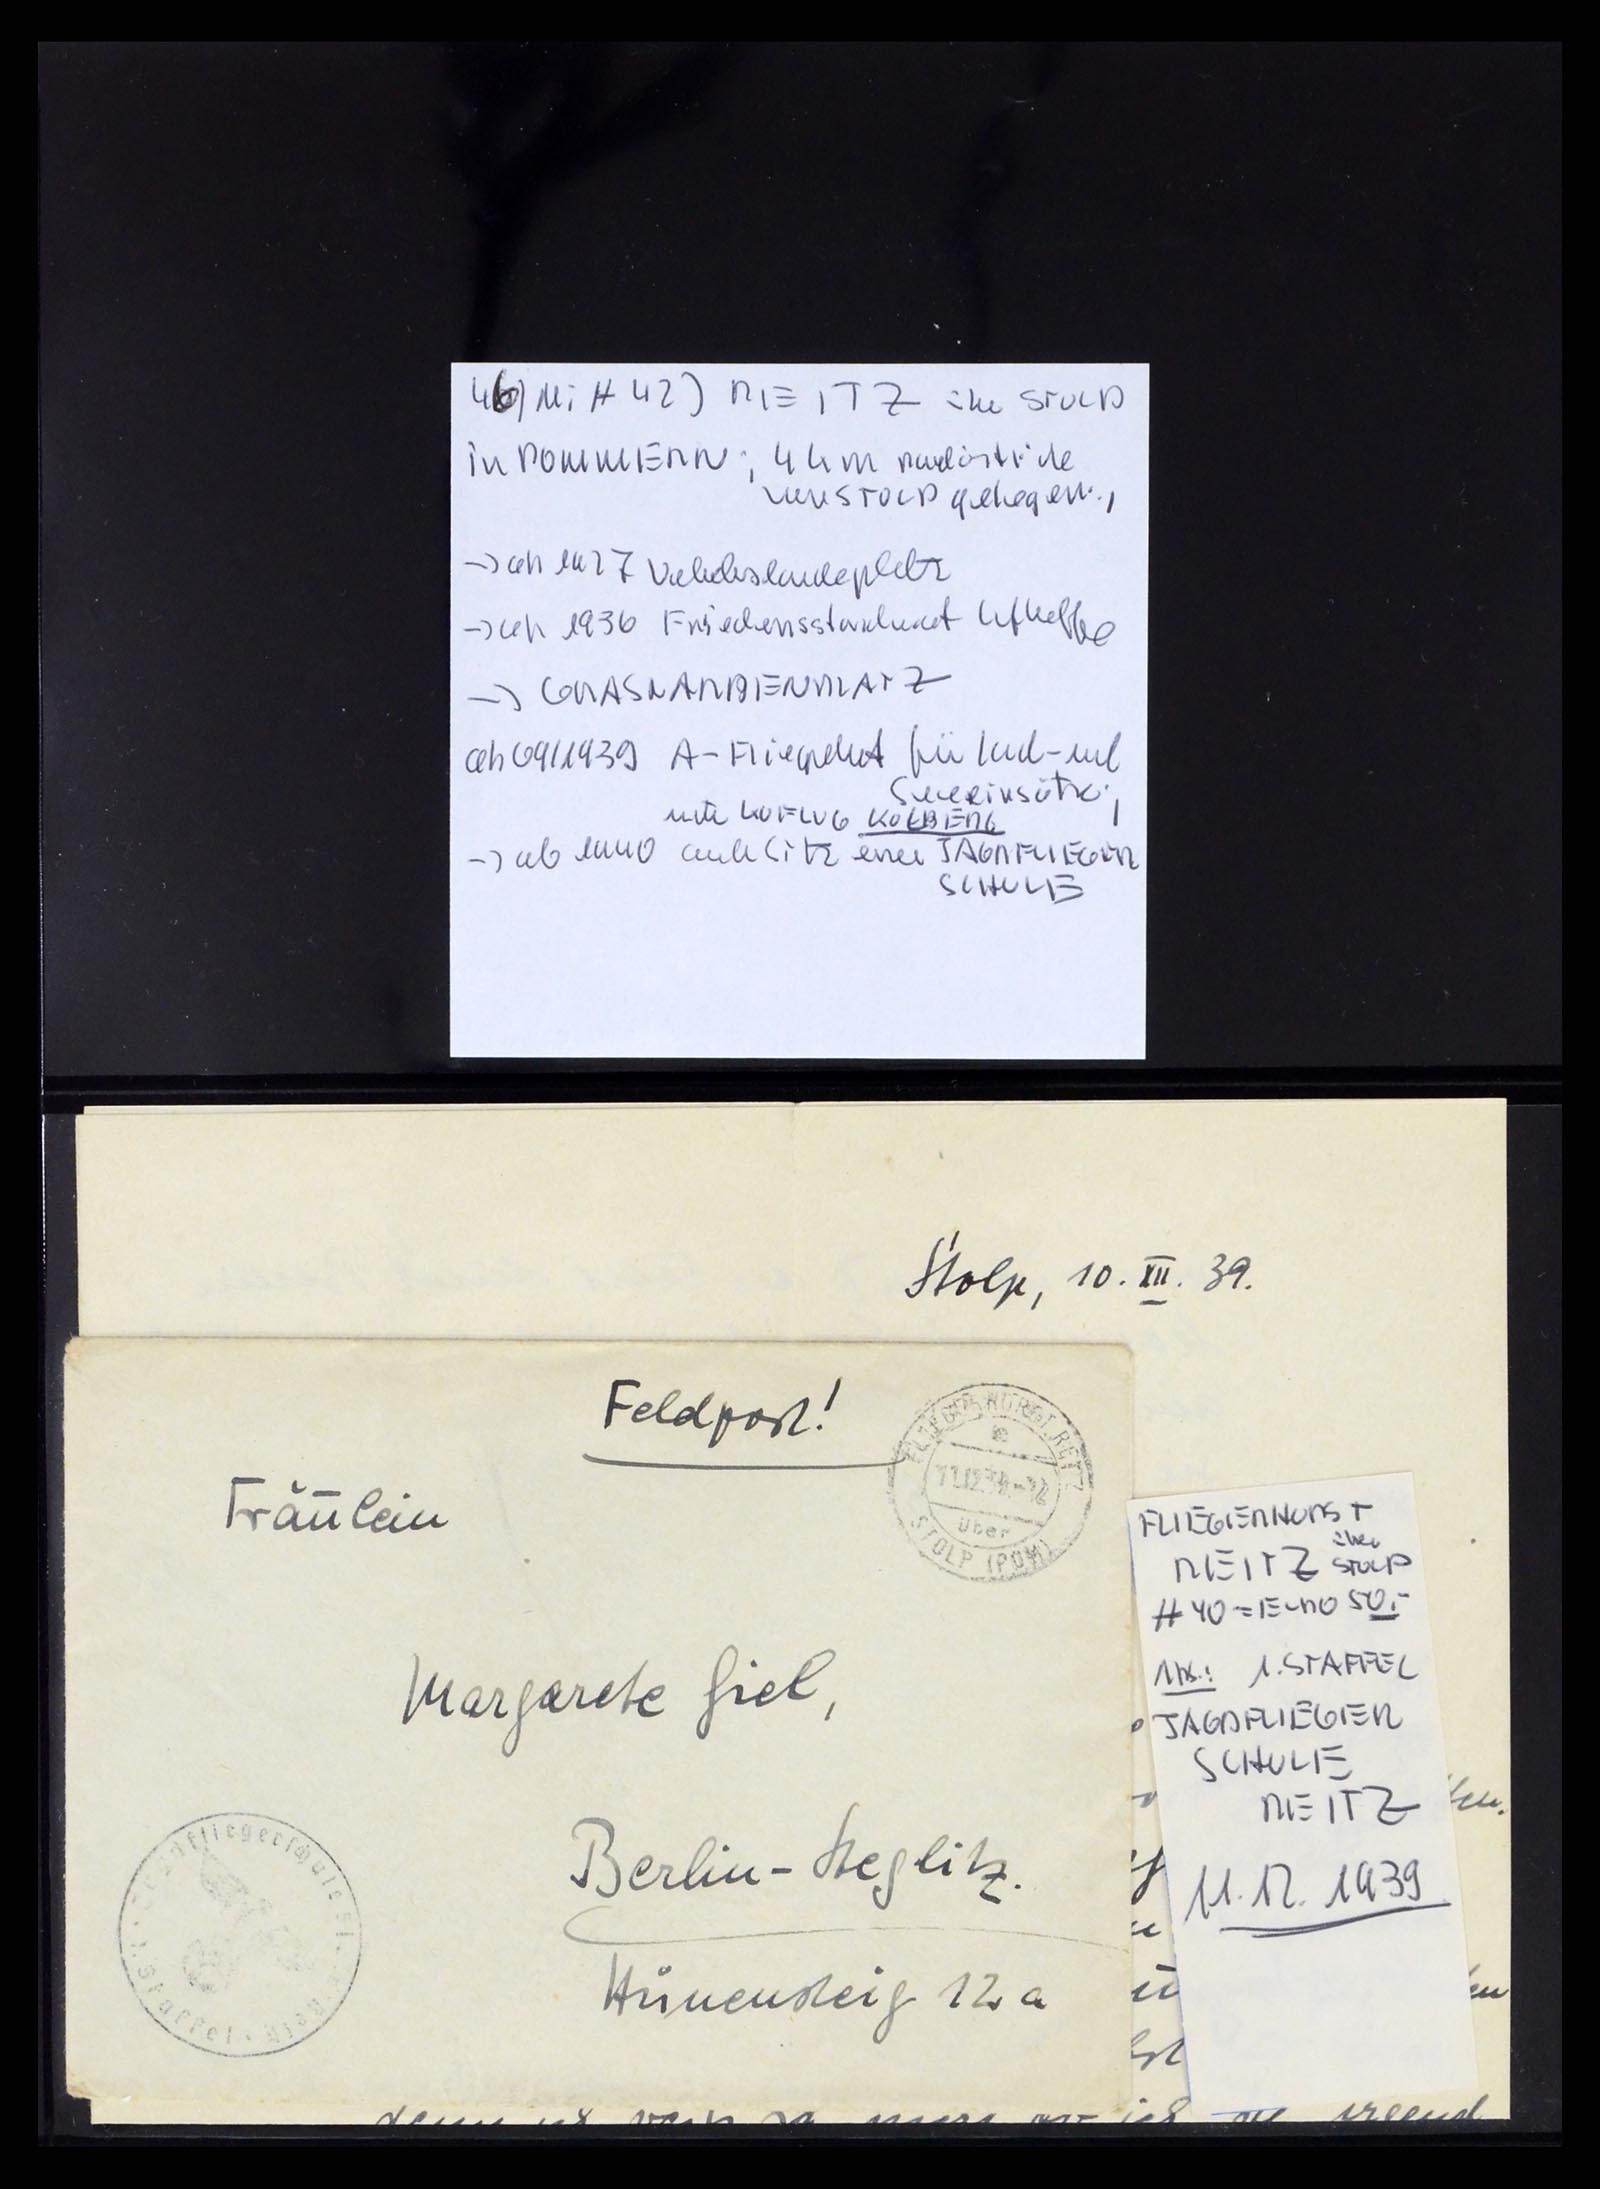 46) Mi # 42) REITZ über STOLP
in POMMERN; 4 km nordöstliche
von STOLP gelegen;
→ ab 1927 Verkehrslandeplatz
→ ab 1936 Friedensstandort Luftwaffe
→ GRASNARBENPLATZ
ab 09/1939 A-Fliegerhorst für Land- und
Seeeinsätze;
unter KOFLUG KOLBERG
→ ab 1940 auch Sitz einer JAGDFLIEGER
SCHULE
Stolp, 10. XII. 39.
Feldpost!
FLIEGERHORST REITZ
e
11.12.39.-12
über
STOLP (POM)
Fräulein
Margarete Giel,
Berlin-Steglitz.
Hünensteig 12a
Jagdfliegerschule
1. Staffel
FLIEGERHORST
REITZ über
STOLP
# 40 = E-NO 50,-
Abs.: 1. STAFFEL
JAGDFLIEGER
SCHULE
REITZ
11. 12. 1939
irgend